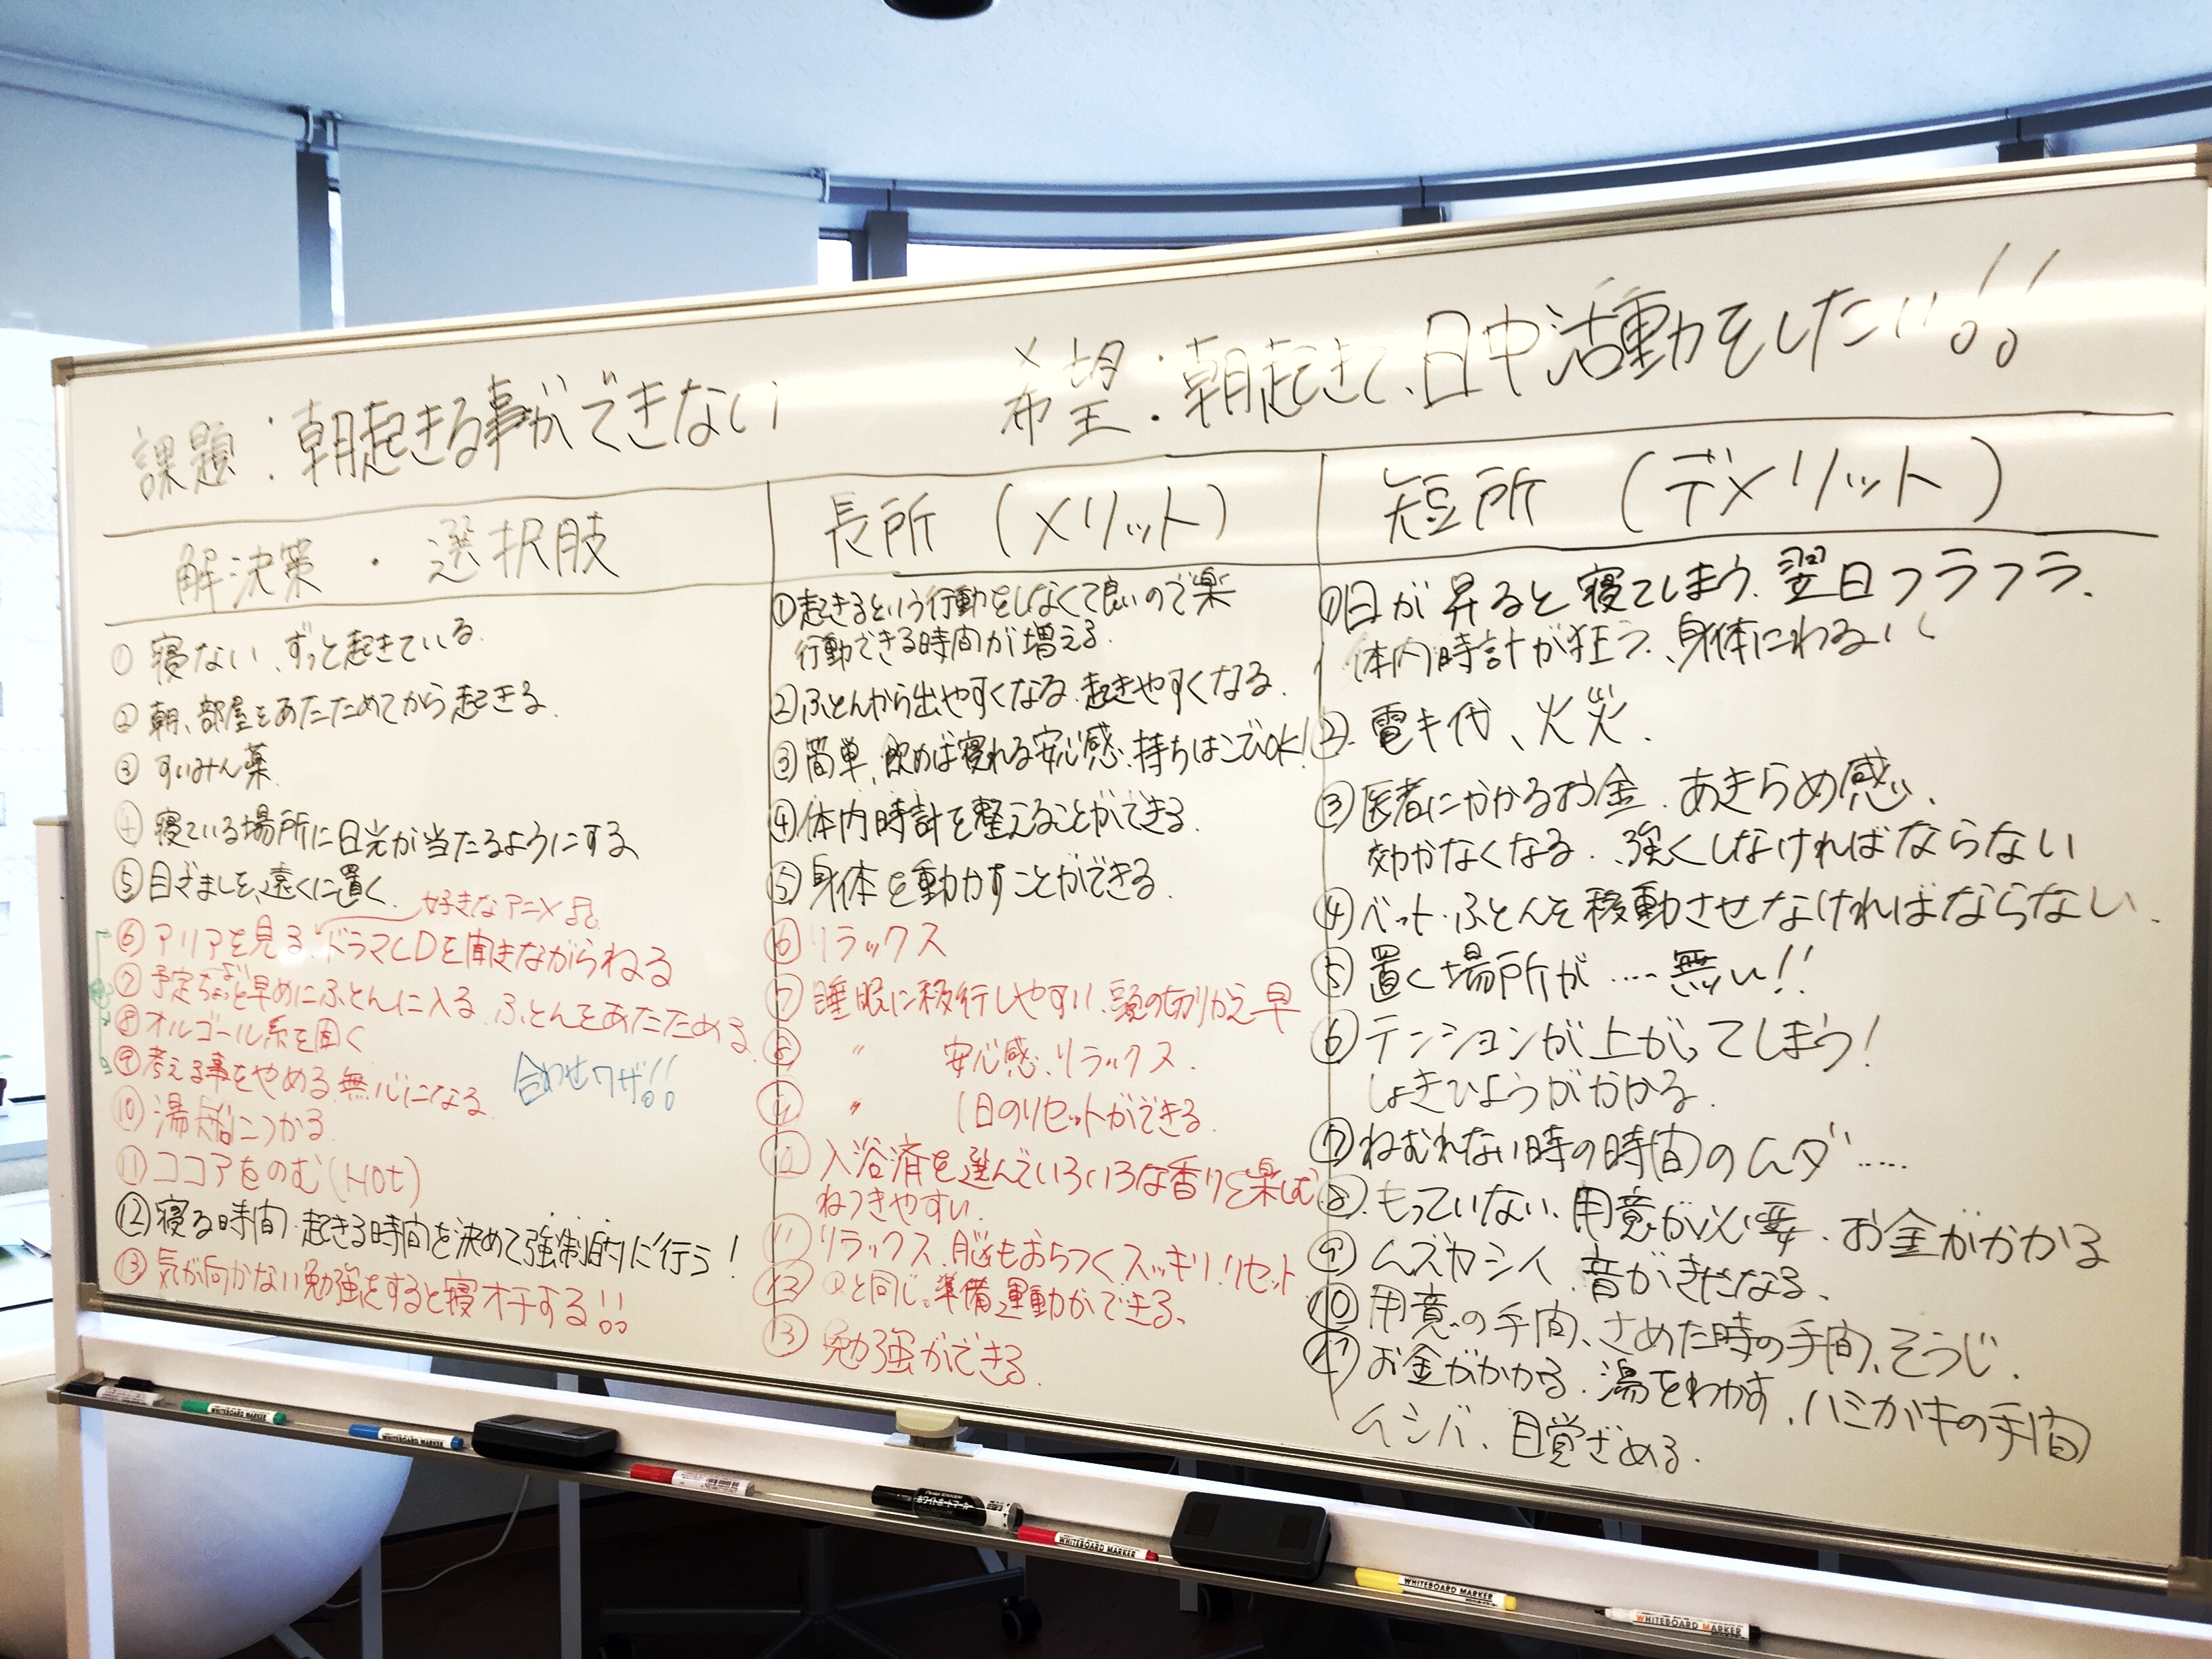 課題：朝起きる事ができない
希望：朝起きて、日中活動をしたい!!
解決策・選択肢
① 寝ない、ずっと起きている。
② 朝、部屋をあたためてから起きる。
③ すいみん薬
④ 寝ている場所に日光が当たるようにする
⑤ 目ざましを遠くに置く。
好きなアニメ
⑥ アリアを見る、ドラマCDを聞きながらねる
⑦ 予定ちょっと早めにふとんに入る、ふとんをあたためる
⑧ オルゴール系を聞く
⑨ 考える事をやめる 無心になる
合わせワザ!!
⑩ 湯船につかる
⑪ ココアをのむ(Hot)
⑫ 寝る時間・起きる時間を決めて強制的に行う！
⑬ 気が向かない勉強をすると寝オチする!!
長所（メリット）
① 起きるという行動をしなくて良いので楽
行動できる時間が増える。
② ふとんから出やすくなる。起きやすくなる。
③ 簡単、飲めば寝れる安心感、持ちはこびOK!
④ 体内時計を整えることができる。
⑤ 身体を動かすことができる。
⑥ リラックス
⑦ 睡眠に移行しやすい、頭の切りかえ早
⑧ 〃 安心感、リラックス.
⑨ 〃 1日のリセットができる.
⑩ 入浴済を選んでいろいろな香りを楽しむ
ねつきやすい.
⑪ リラックス、脳もおちつく スッキリ！リセット
⑫ と同じ。準備運動ができる、
⑬ 勉強ができる.
短所（デメリット）
① 日が昇ると寝てしまう、翌日フラフラ.
体内時計が狂う、身体にわるい
② 電キ代、火災.
③ 医者にかかるお金、あきらめ感、
効かなくなる、強くしなければならない
④ ベット・ふとんを移動させなければならない.
⑤ 置く場所が....無い!!
⑥ テンションが上がってしまう!
しょきひようがかかる.
⑦ ねむれない時の時間のムダ.....
⑧ もっていない、用意が必要、お金がかかる
⑨ ムズカシイ、音がきになる、
⑩ 用意の手間、さめた時の手間、そうじ.
⑪ お金がかかる、湯をわかす、ハミガキの手間
ムシバ、目覚ざめる.
WHITEBOARD MARKER
WHITEBOARD MARKER
ホワイトボードマーカー
WHITEBOARD MARKER
WHITEBOARD MARKER
WHITEBOARD MARKER